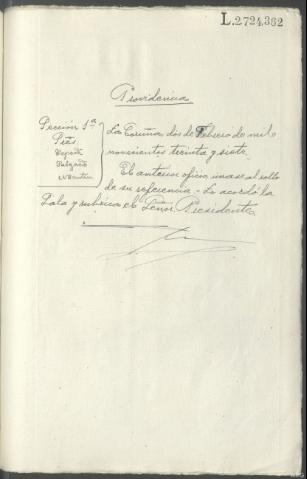 L.2724,362
Providencia
Sección 1ª
Sres
La Coruña, dos de Febrero de mil
novecientos treinta y siete.
El anterior oficio unase al rollo
de su referencia - Lo acordó la
Sala y rubrica el Señor Presidente